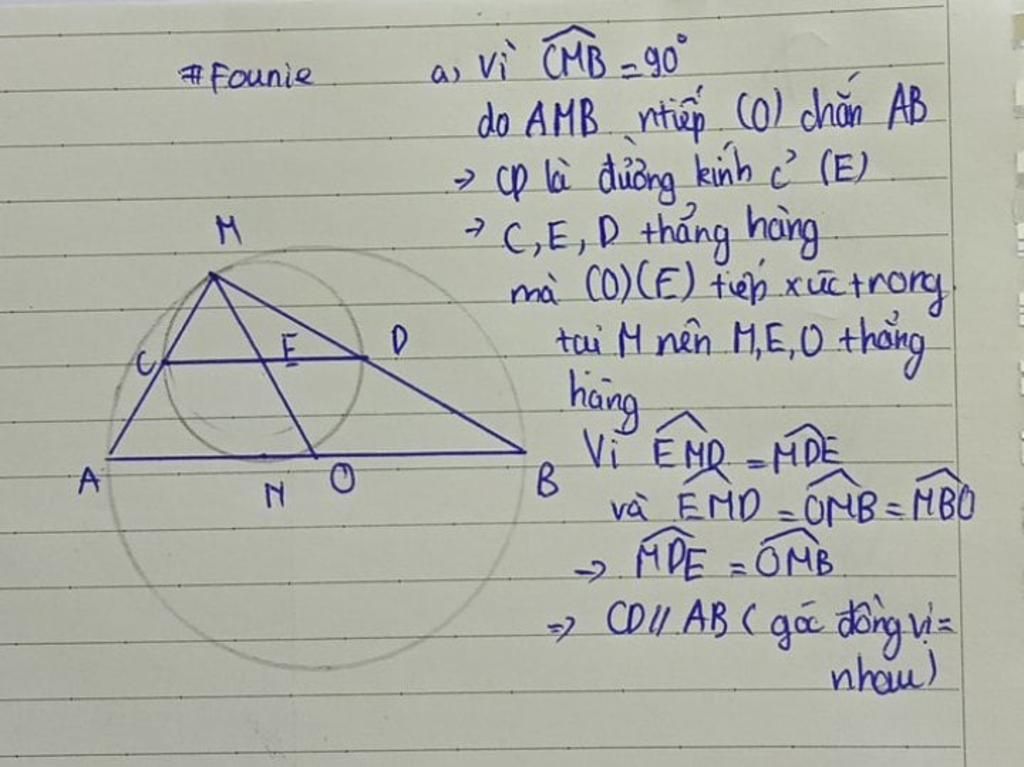 #Founie
a, Vì CMB = 90°
do AMB ntiếp (O) chắn AB
→ CD là đường kính c² (E)
→ C, E, D thẳng hàng
mà (O)(E) tiếp xúc trong
tại M nên M, E, O thẳng
hàng
Vì EMD = MDE
và EMD = OMB = MBO
→ MDE = OMB
⇒ CD // AB ( góc đồng vị =
nhau)
M
C
E
D
A
N
O
B